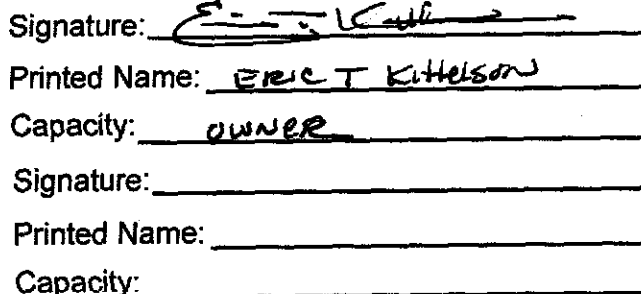 Signature:
Printed Name: ERIC T Kittelson
Capacity: OWNER
Signature:
Printed Name:
Capacity: